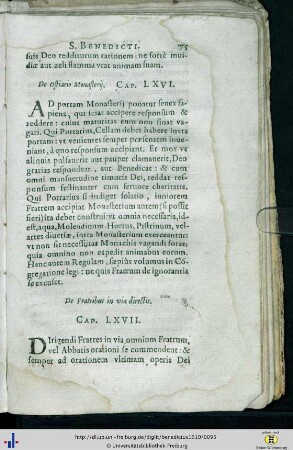 S. BENEDICTI. 75
suis, Deo redditurum rationem; ne fortè inui-
diæ aut zeli flamma vrat animam suam.
De Ostiario Monasterij. CAP. LXVI.
AD portam Monasterij ponatur senex sa-
piens, qui sciat accipere responsum &
reddere: cuius maturitas eum non sinat va-
gari. Qui Portarius, Cellam debet habere iuxta
portam: vt venientes semper præsentem inue-
niant, à quo responsum accipiant. Et mox vt
aliquis pulsauerit aut pauper clamauerit, Deo
gratias respondeat, aut Benedicat: & cum
omni mansuetudine timoris Dei, reddat res-
ponsum festinanter cum feruore charitatis.
Qui Portarius si indiget solatio, iuniorem
Fratrem accipiat Monasterium autem (si possit
fieri) ita debet construi: vt omnia necessaria, id
est, aqua, Molendinum Hortus, Pistrinum, vel
artes diuersæ, intra Monasterium exerceantur
vt non sit necessitas Monachis vagandi foras,
quia omnino non expedit animabus eorum.
Hanc autem Regulam, sæpius volumus in Cō-
gregatione legi: ne quis Fratrum de ignorantia
se excuset.
De Fratribus in via directis.
CAP. LXVII.
DIrigendi Fratres in via, omnium Fratrum,
vel Abbatis orationi se commendent: &
semper ad orationem vltimam operis Dei
http://dl.ub.uni-freiburg.de/diglit/benedictus1610/0095
© Universitätsbibliothek Freiburg